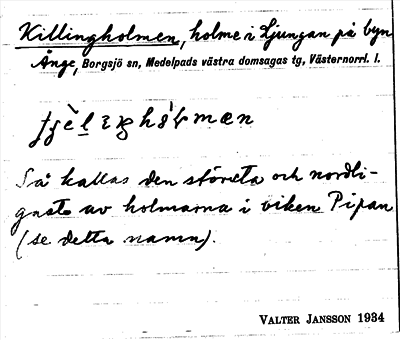 Killingholmen, holme i Ljungan på byn
Ånge, Borgsjö sn, Medelpads västra domsagas tg, Västernorrl. l.
Så kallas den största och nordli-
gaste av holmarna i viken Pipan
(se detta namn).
VALTER JANSSON 1934